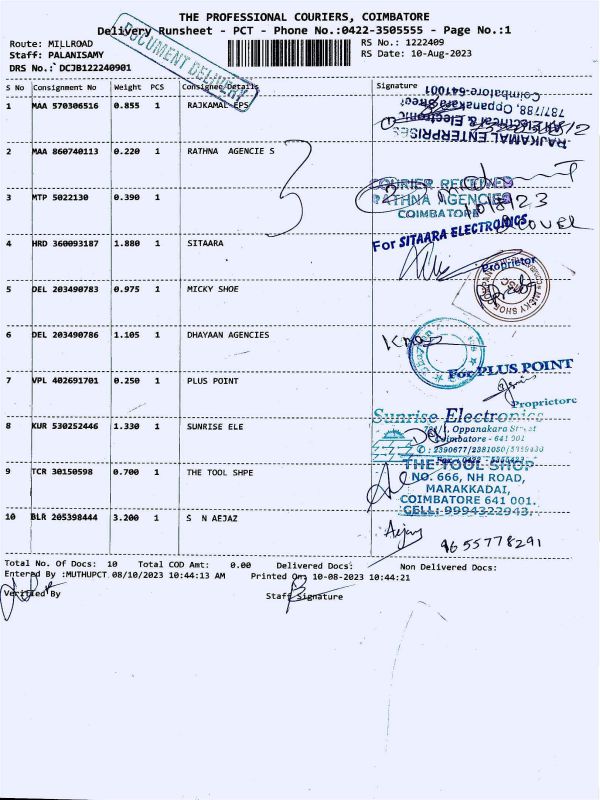 THE PROFESSIONAL COURIERS, COIMBATORE
Delivery Runsheet - PCT - Phone No.:0422-3505555 - Page No.:1
Route: MILLROAD
RS No.: 1222409
Staff: PALANISAMY
RS Date: 10-Aug-2023
DRS No.: DCJB122240901
DOCUMENT DELIVERY
S No Consignment No Weight PCS Consignee Details Signature
1 MAA 570306516 0.855 1 RAJKAMAL EPS
RAJKAMAL ENTERPRISES
Electrical & Electronic
787/788, Oppanakara Street
Coimbatore-641001
2 MAA 860740113 0.220 1 RATHNA AGENCIE S
COURIER RECEIVED
RATHNA AGENCIES
COIMBATORE
3 MTP 5022130 0.390 1
4 HRD 360093187 1.880 1 SITAARA
For SITAARA ELECTRONICS
Proprietor
5 DEL 203490783 0.975 1 MICKY SHOE
MICKY SHOE
6 DEL 203490786 1.105 1 DHAYAAN AGENCIES
7 VPL 402691701 0.250 1 PLUS POINT
For PLUS POINT
Proprietore
8 KUR 530252446 1.330 1 SUNRISE ELE
Sunrise Electronics
Oppanakara Street
Coimbatore - 641 001
9 TCR 30150598 0.700 1 THE TOOL SHPE
THE TOOL SHOP
NO. 666, NH ROAD,
MARAKKADAI,
COIMBATORE 641 001.
CELL: 9994322943.
10 BLR 205398444 3.200 1 S N AEJAZ
Aejaz
9655778291
Total No. Of Docs: 10 Total COD Amt: 0.00 Delivered Docs: Non Delivered Docs:
Entered By :MUTHUPCT 08/10/2023 10:44:13 AM Printed On: 10-08-2023 10:44:21
Verified By
Staff Signature